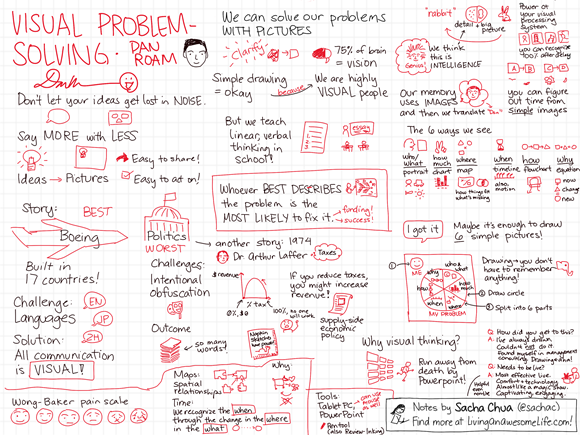 VISUAL PROBLEM-
SOLVING · DAN
ROAM
Don't let your ideas get lost in NOISE.
Say MORE with LESS
Easy to share!
Ideas → Pictures
Easy to act on!
Story:
BEST
Boeing
Built in
17 countries!
Challenge:
Languages
EN
JP
Solution:
ZH
All communication
is VISUAL!
Wong-Baker pain scale
Politics
WORST
Challenges:
Intentional
obfuscation
Outcome
so many words!
another story: 1974
Dr Arthur Laffer
Taxes
$ revenue
% tax
0%, $0
100%, no one
will work
If you reduce taxes,
you might increase
revenue!
supply-side
economic
policy
Napkin
Maps:
Spatial
relationships
Time:
We recognize the when
through the change in the where
in the what
Why:
We can solve our problems
WITH PICTURES
Clarify
75% of brain
= vision
Simple drawing
= okay
because
We are highly
VISUAL people
But we teach
linear, verbal
thinking in
school!
essay
Whoever BEST DESCRIBES
the problem is the
MOST LIKELY to fix it.
finding!
success!
"rabbit"
detail + big
picture
We think
this is
INTELLIGENCE
Genius!
Our memory
uses IMAGES
and then we translate
Power of
your visual
processing
system
you can recognize
100% after delay
A B C
you can figure
out time from
simple images
The 6 ways we see
who/
what
portrait
how
much
chart
where
map
when
timeline
how
flowchart
why
equation
how things fit
what's missing
also:
motion
now
change
new
I got it
Maybe it's enough to draw
6 simple pictures!
ME
MY PROBLEM
who &
what
how
much
where
when
how
why
Drawing → you don't
have to remember
anything!
① Draw circle
② Split into 6 parts
Why visual thinking?
Run away from
death by
Powerpoint!
Tools:
Tablet PC
PowerPoint
Pentool
(also Review-Inking)
Q. How did you get to this?
A. I've always drawn.
Couldn't not do it.
Found myself in management
consulting. Drawing → this!
Q. Needs to be live?
A. Most effective live.
Comfort w technology.
Almost like a magic show.
Captivating, engaging.
Notes by Sacha Chua (@sachac)
Find more at LivingAnAwesomeLife.com!